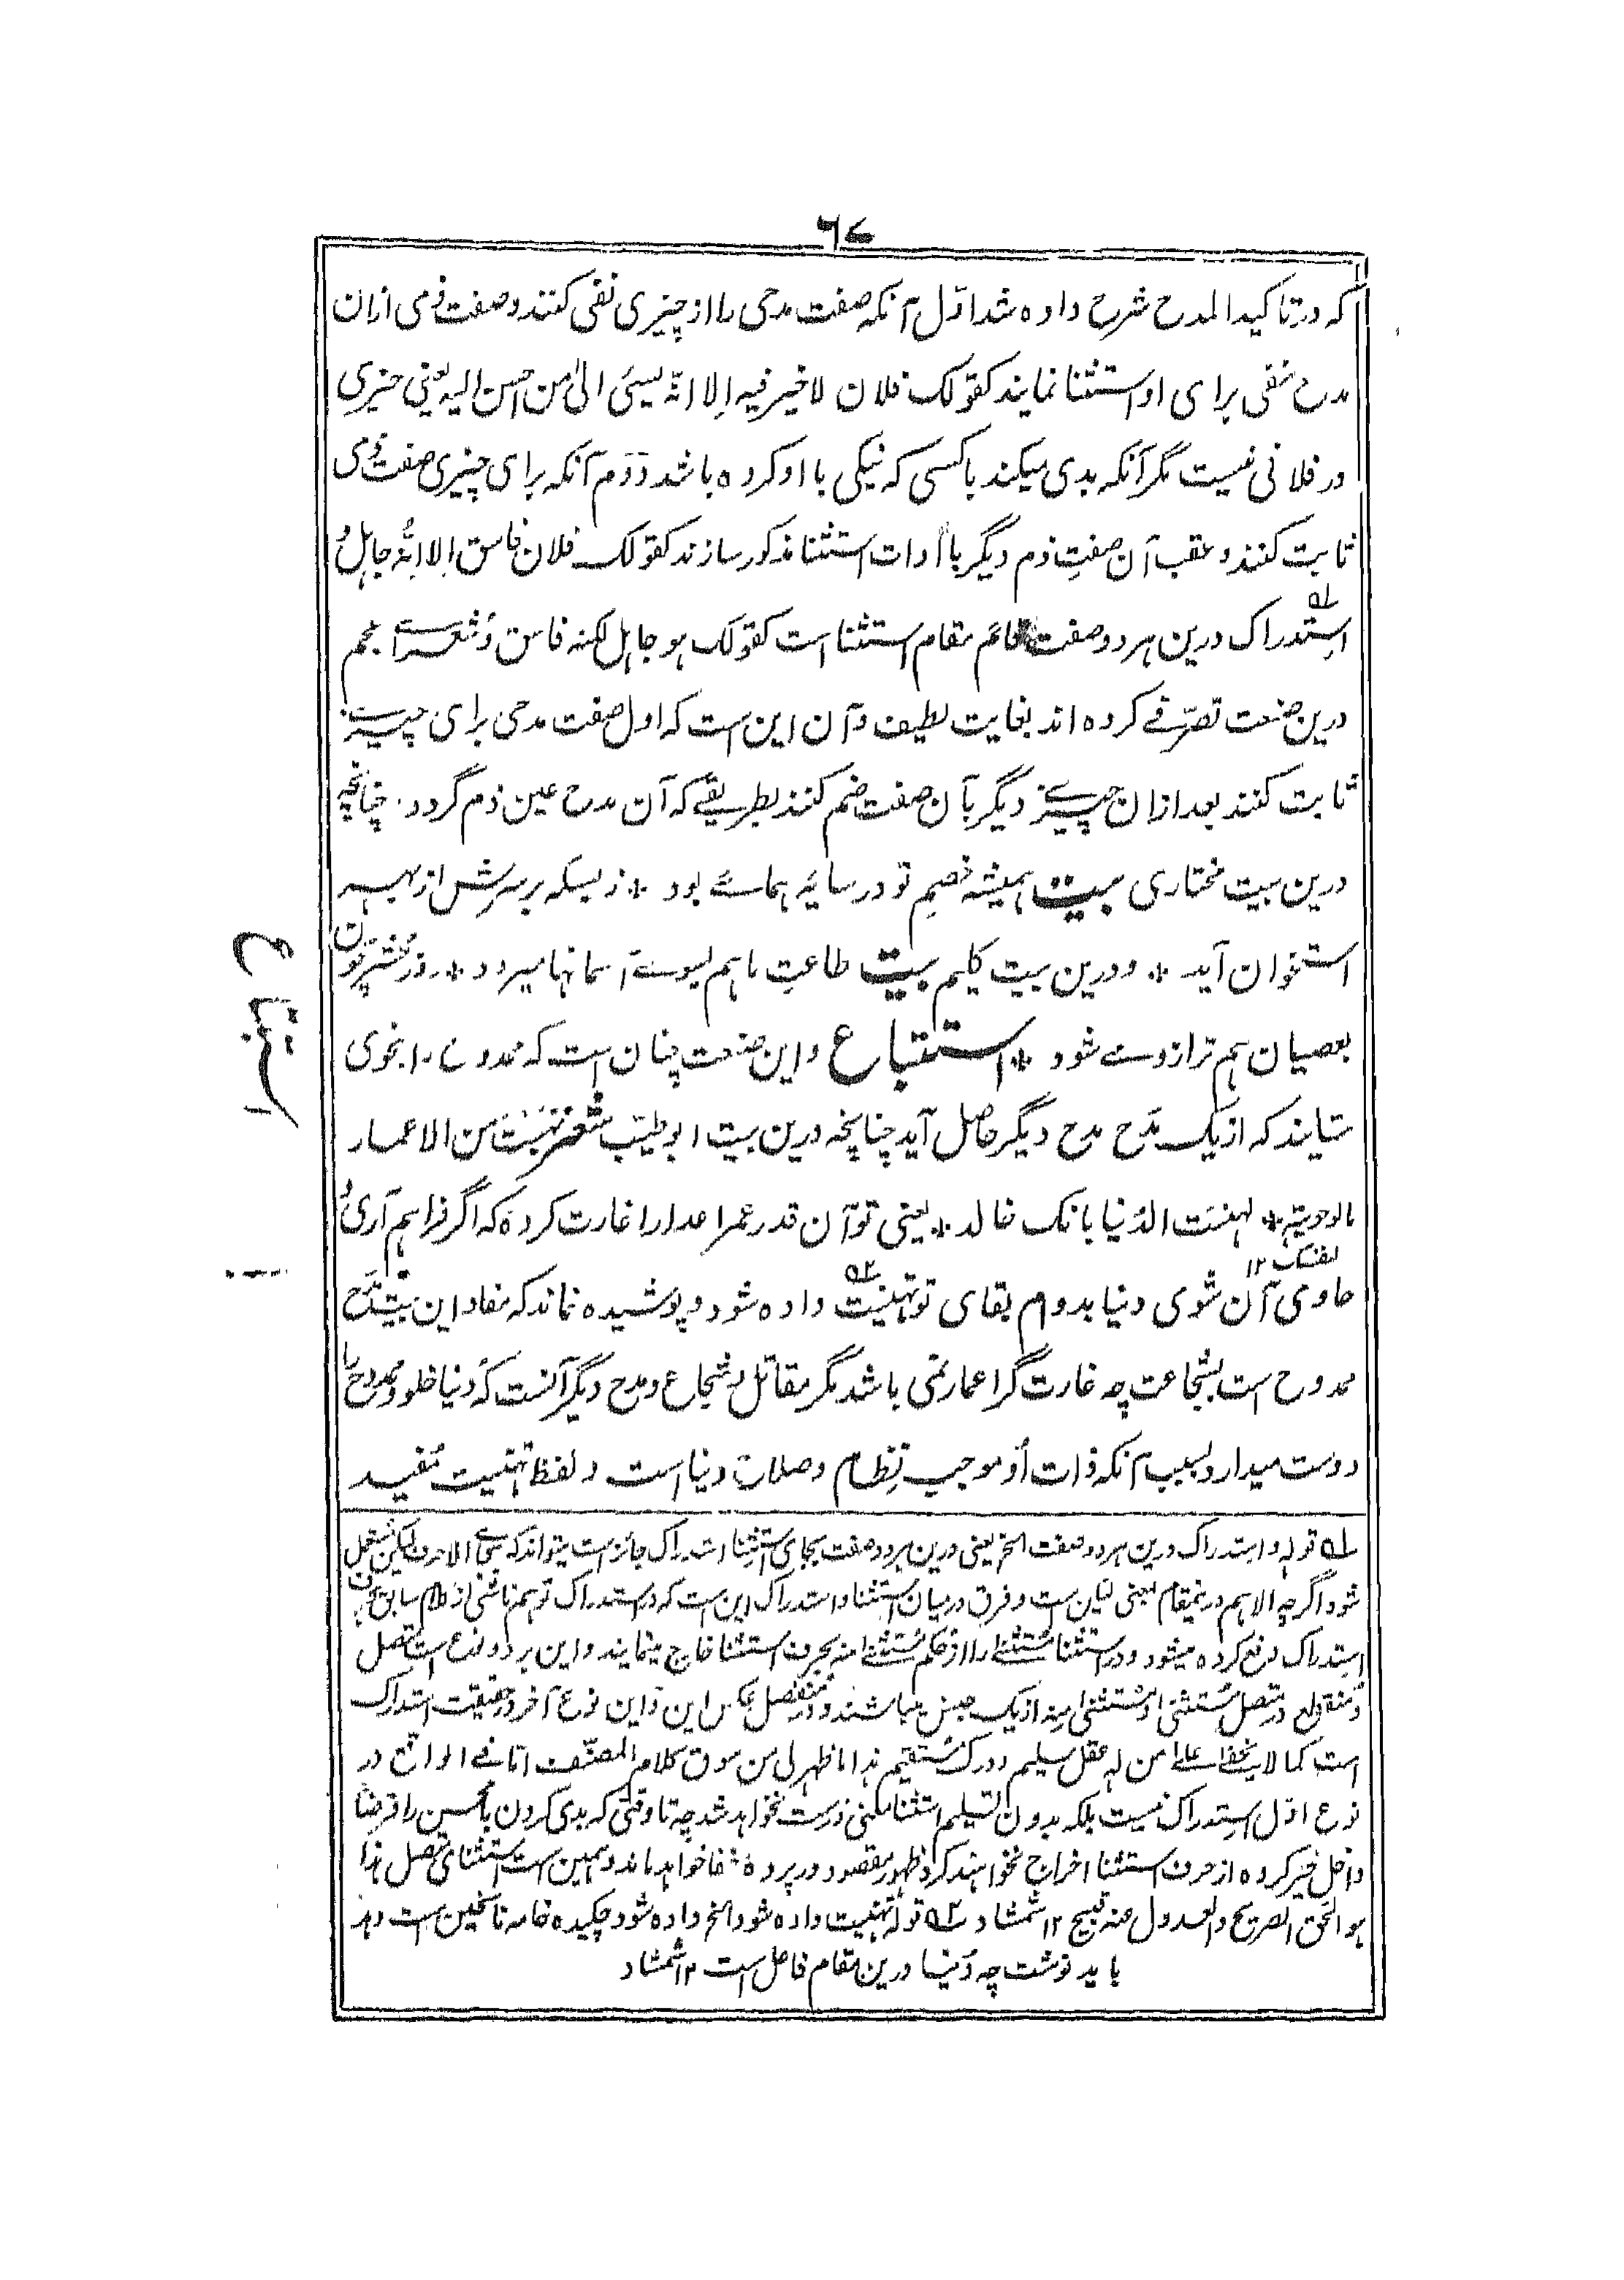 ۶۷
که در تاکید المدح شرح داده شد اوّل آنکه صفت مدحی را از چیزی نفی کنند و صفت ذمی ازان
مدح منفی برای او استثنا نمایند کقولک فلان لا خیر فیه اِلا انّه لیسیٔ الیٰ من احسن الیه یعنی خیری
در فلانی نیست مگر آنکه بدی میکند با کسی که نیکی با او کرده باشد دَوّم آنکه برای چیزی صفت ذمی
ثابت کنند و عقب آن صفتِ ذم دیگر با ادات استثنا مذکور سازند کقولک فلان فاسق اِلا انّه جاهلٌ و
استِدراک درین هر دو صفت قائم مقام استثنا است کقولک هو جاهل لکنه فاسق و شعرای عجم
درین صنعت تصرّفے کرده اند بغایت لطیف و آن این است که اول صفت مدحی برای چیزے
ثابت کنند بعد ازان چیزے دیگر بآن صفت ضم کنند بطریقے که آن مدح عین ذم گردد چنانچه
درین بیت مختاری بیت همیشه خصمِ تو در سایهٔ همائے بود * زبسکه بر سرش از بهر
استخوان آید * و درین بیت کلیم بیت طاعتِ ما هم بسوے آسمانها میرود * روزِ محشر چون
بعصیان هم ترازو مے شود * استتباع و این صنعت چنان است که ممدوح را بنحوی
ستایند که از یک مَدح مدح دیگر حاصل آید چنانچه درین بیت ابو طیّب شعر نَهَبْتَ من الاعمار
ما لو حویته * لهنئت الدّنیا بانک خالد * یعنی تو آن قدر عمر اعدا را غارت کردهٔ که اگر فراهم آری و
حاوی آن شوی دنیا بدوامِ بقای تو تهنیت داده شود و پوشیده نماند که مفاد این بیت مَدح
ممدوح است بشجاعت چه غارت گر اعمار نمی باشد مگر مقاتل و شجاع و مدح دیگر آنست که دنیا خلود ممدوح را
دوست میدارد بسبب آنکه ذات او موجب نِظام و صلاح دنیا است و لفظ تهنیت مُفید
استتباع
۱؎ قوله و استدراک درین هر دو صفت الخ یعنی درین هر دو صفت بجای استثنا استدراک جائز است میتواند که بجای الا حرف لیکن مستعمل
شود اگرچه الا هم درینمقام بمعنی لیکن ست و فرق درمیان استثنا و استدراک این ست که در استدراک توهم ناشی از کلام سابق بحرف
استِدراک دفع کرده میشود و در استثنا مستثنےٰ را از حکم مستثنےٰ منه بحرف استثنا خارج مینمایند و این بر دو نوع است متصل
و منقطع در متصل مُستثنی و مُستثنی منه از یک جنس میباشند و در منفصل بعکس این و این نوع آخر در حقیقت استدراک
است کما لا یخفےٰ علےٰ من له عقل سلیم و درک مُستقیم هذا ما ظهر لی من سوق کلام المصنّف امّا فے الواقع در
نوع اوّل استِدراک نیست بلکه بدون تسلیم استثنا معنی درست نخواهد شد چه تا وقتی که بدی کردن با محسن را فرضًا
داخل خیر کرده از حرف استثنا اخراج نخواهند کرد ظهور مقصود در پردهٔ خفا خواهد ماند و همین است استثنای متصل هذا
هو الحق الصریح و العدول عنه قبیح ۱۲ شمشاد ۲؎ قوله تهنیت داده شود الخ داده شود چکیدهٔ خامه ناسخین است دهد
باید نوشت چه دُنیا درین مقام فاعل است ۱۲ شمشاد